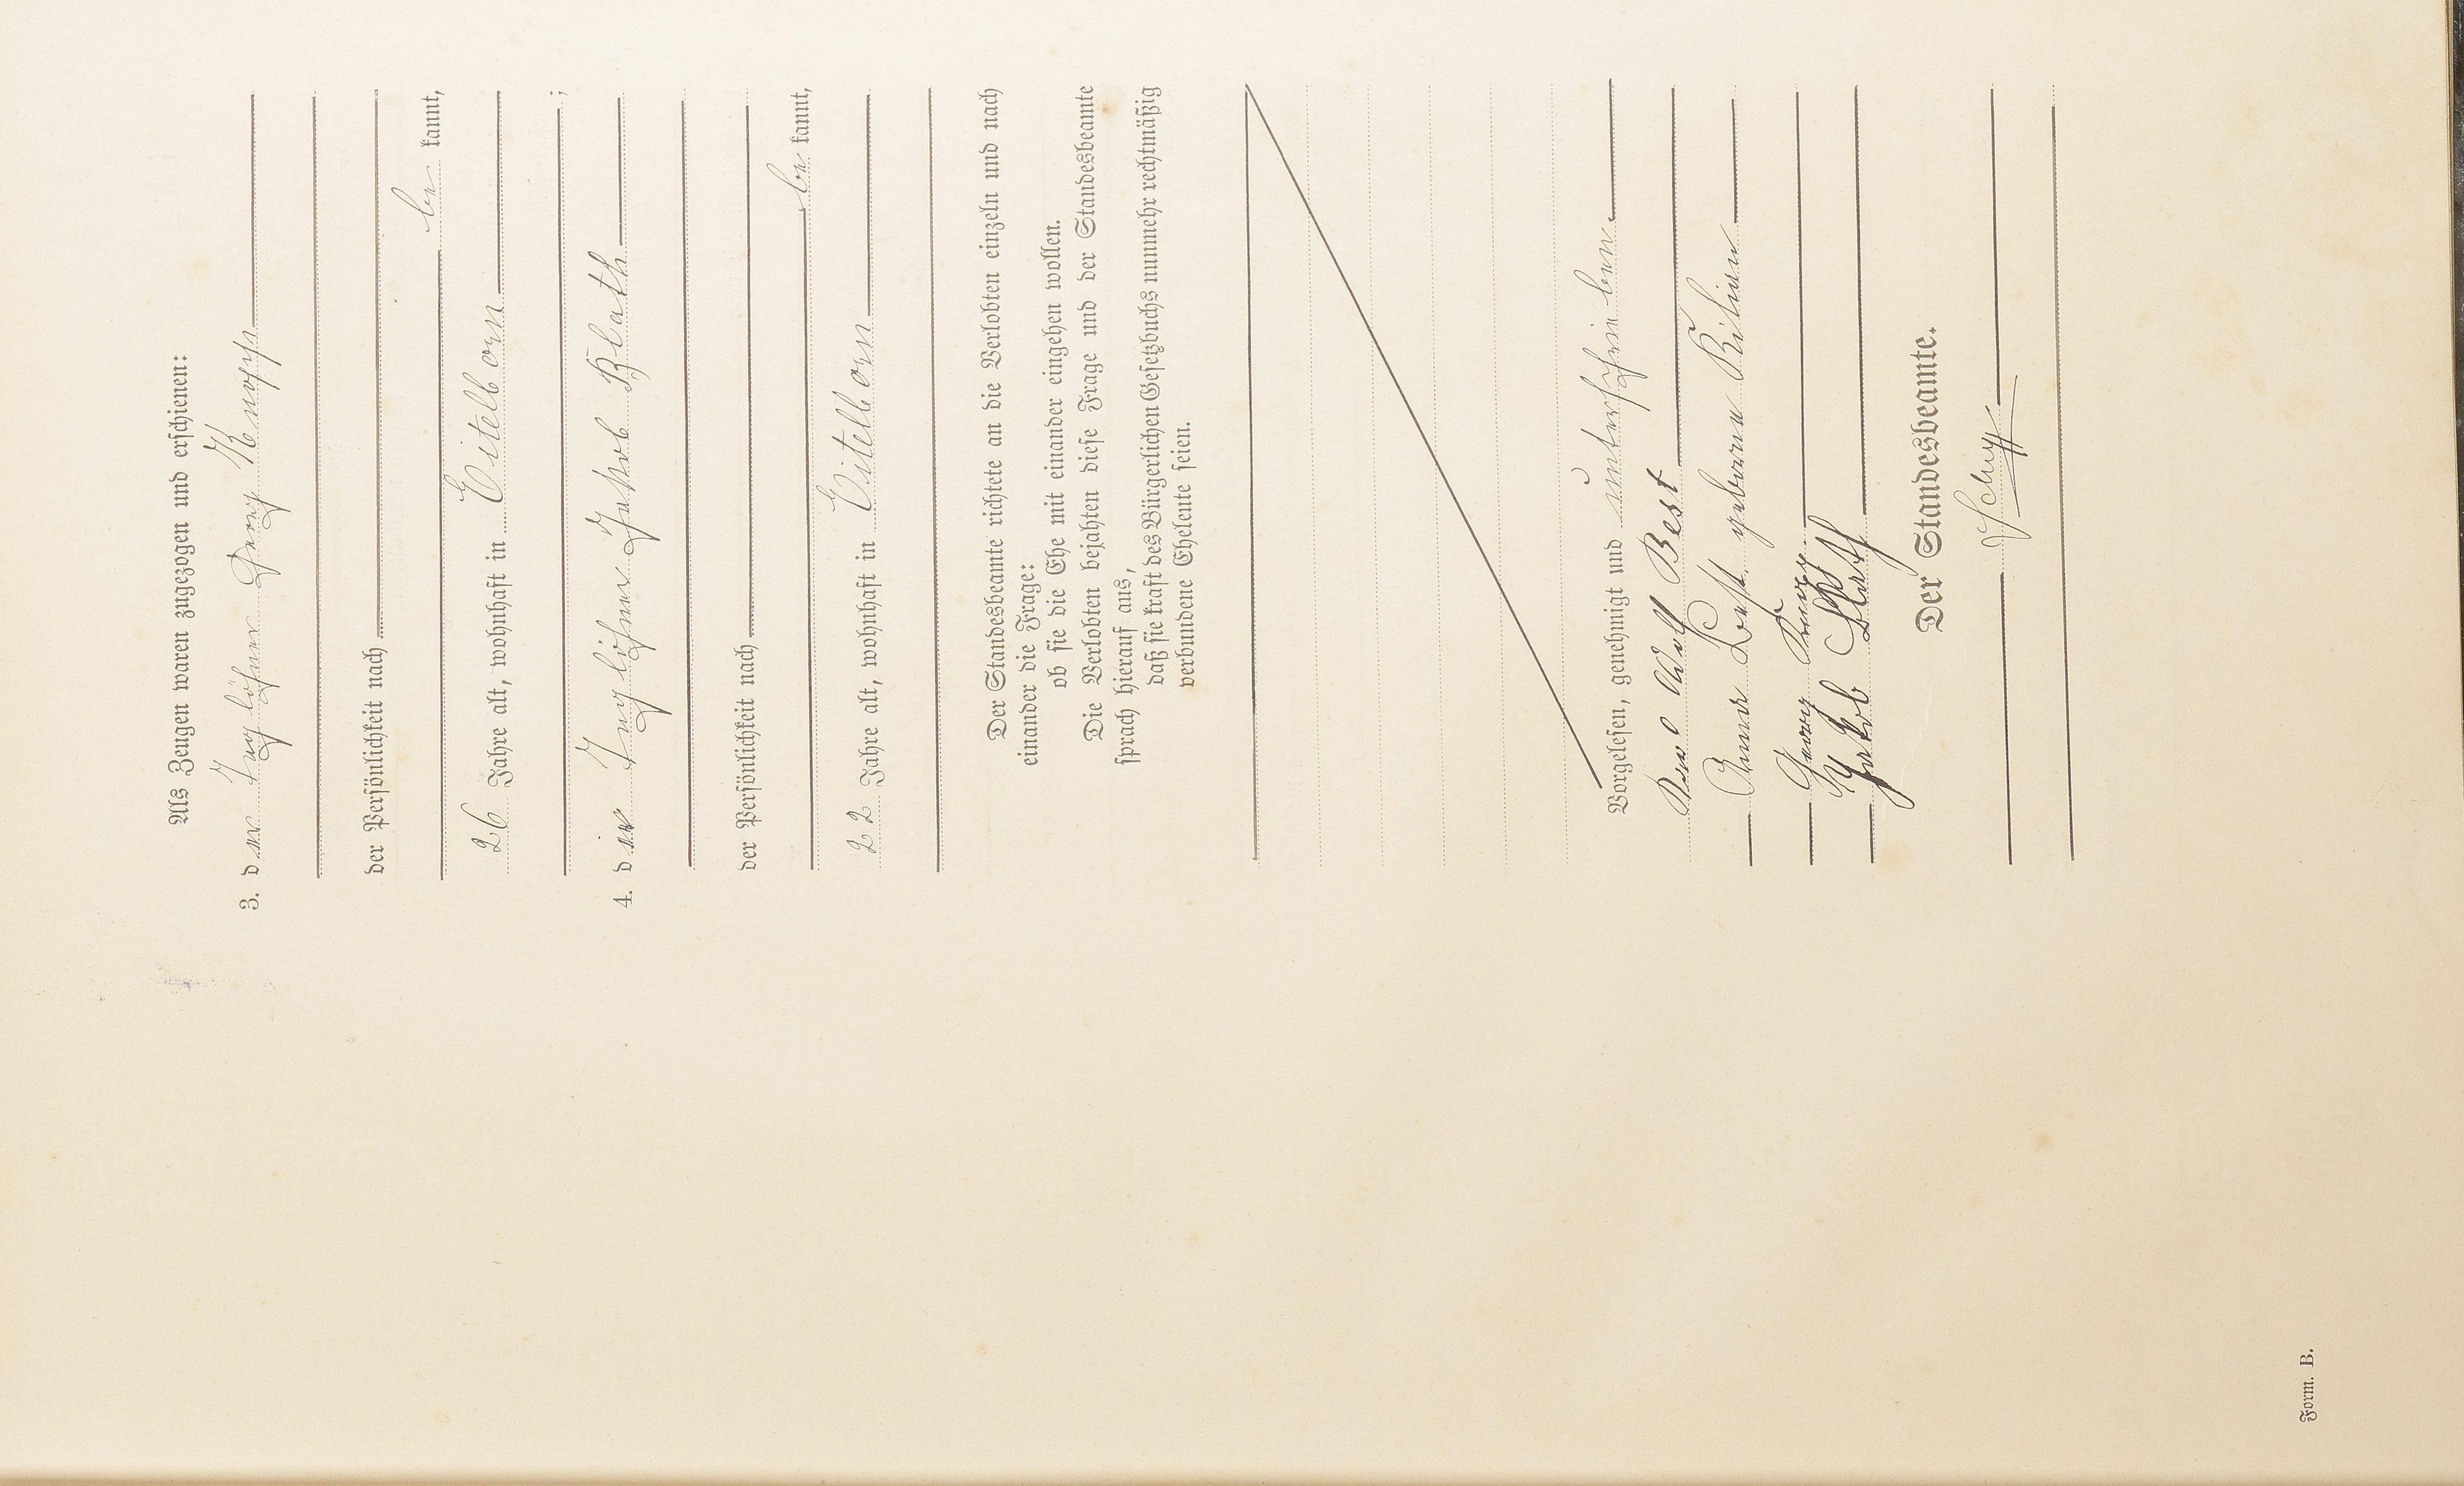 Als Zeugen waren zugezogen und erschienen:
3. der Taglöhner Georg Knopp
der Persönlichkeit nach
bekannt,
26 Jahre alt, wohnhaft in Eitelborn
;
4. der Taglöhner Jakob Blath
der Persönlichkeit nach
bekannt,
22 Jahre alt, wohnhaft in Eitelborn
Der Standesbeamte richtete an die Verlobten einzeln und nach
einander die Frage:
ob sie die Ehe mit einander eingehen wollen.
Die Verlobten bejahten diese Frage und der Standesbeamte
sprach hierauf aus,
daß sie kraft des Bürgerlichen Gesetzbuchs nunmehr rechtmäßig
verbundene Eheleute seien.
Vorgelesen, genehmigt und unterschrieben
Best
Anna Best geborene
Georg
Jakob Blath
Der Standesbeamte.
Form. B.